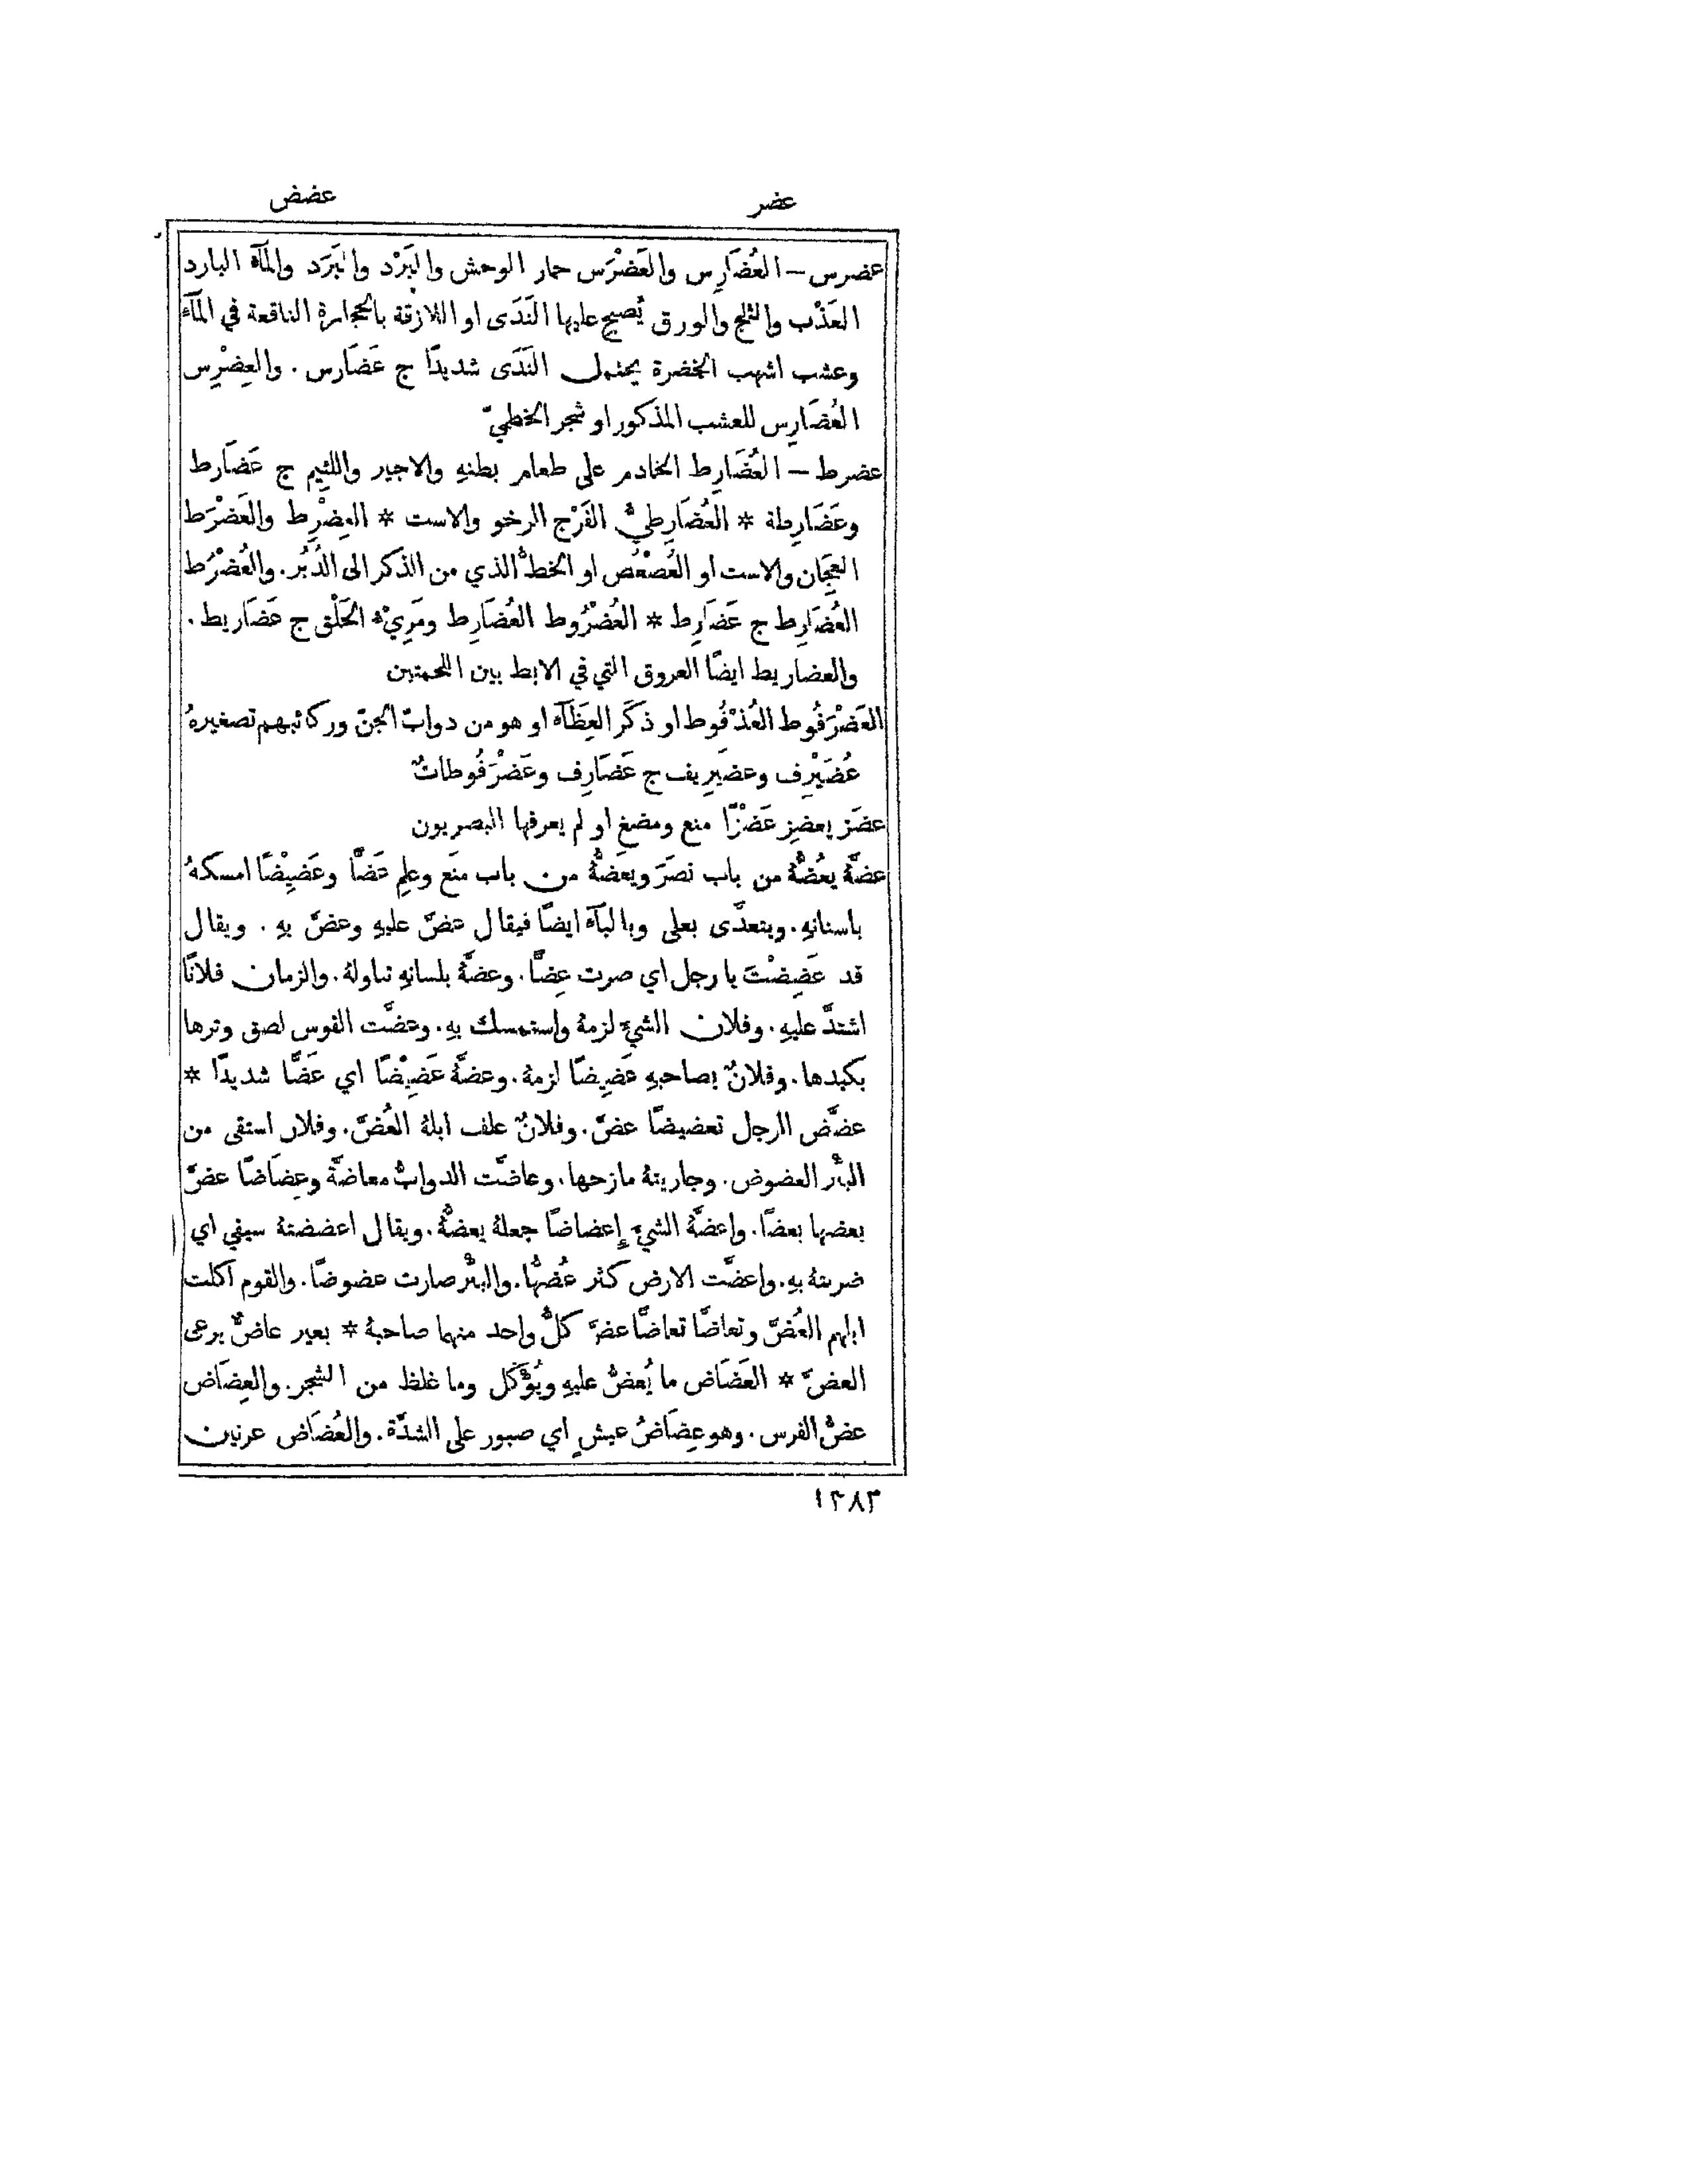 عضر عضض
عضرس – العُضَارِس والعَضْرَس حمار الوحش والبَرْد والبَرَد والمآء البارد
العَذْب والثلج والورق يُصبح عليها النَدَى او اللازقة بالحجارة الناقعة في المآء
وعشب اشهب الخضرة يحتمل النَدَى شديدًا ج عَضَارس . والعِضْرِس
العُضَارِس للعشب المذكور او شجر الخطميّ
عضرط – العُضَارِط الخادم على طعام بطنهِ والاجير واللئيم ج عَضَارط
وعَضَارِطة * العُضَارِطيُّ الفَرْج الرخو والاست * العِضْرِط والعَضْرَط
العِجَان والاست او العُصْعُص او الخطُّ الذي من الذكر الى الدُبُر. والعُضْرُط
العُضَارِط ج عَضَارِط * العُضْرُوط العُضَارِط ومَرِيْءُ الحَلْق ج عَضَاريط .
والعضاريط ايضًا العروق التي في الابط بين اللحمتين
العَضْرَفُوط العُذْفُوط او ذكَر العِظَآء او هو من دوابّ الجنّ وركائبهم تصغيرهُ
عُضَيْرِف وعضَيرِيف ج عَضَارِف وعَضْرَفُوطاتٌ
عضَز يعضِز عَضْزًا منع ومضغ او لم يعرفها البصريون
عضَّهُ يعُضُّهُ من باب نصَرَ ويعَضُّهُ من باب منَع وعلِم عَضًّا وعَضِيْضًا امسكهُ
باسنانهِ. ويتعدَّى بعلى وبالبآء ايضًا فيقال عضَّ عليهِ وعضَّ بهِ . ويقال
قد عَضِضْتَ يا رجل اي صرت عِضًّا. وعضَّهُ بلسانهِ تناولهُ. والزمان فلانًا
اشتدَّ عليهِ. وفلان الشيءَ لزمهُ واستمسك بهِ. وعضَّت القوس لصق وترها
بكبدها. وفلانٌ بصاحبهِ عَضِيضًا لزمهُ. وعضَّهُ عَضِيْضًا اي عَضًّا شديدًا *
عضَّض الرجل تعضيضًا عضَّ. وفلانٌ علف ابلهُ العُضَّ. وفلان استقى من
البئر العضوض. وجاريتهُ مازحها. وعاضَّت الدوابُّ معاضَّةً وعِضَاضًا عضَّ
بعضها بعضًا. واعضَّهُ الشيءَ إِعضاضًا جعلهُ يعضُّهُ. ويقال اعضضتهُ سيفي اي
ضربتهُ بهِ. واعضَّت الارض كثر عُضُّها. والبئرُ صارت عضوضًا. والقوم اكلت
ابلهم العُضَّ وتعاضَّا تعاضًّا عضَّ كلُّ واحد منهما صاحبهُ * بعير عاضٌّ يرعى
العضَّ * العَضَاض ما يُعَضُّ عليهِ ويُؤْكل وما غلظ من الشجر. والعِضَاض
عضُّ الفرس. وهو عِضَاضُ عيشٍ اي صبور على الشدَّة. والعُضَاض عرنين
١٣٨٣